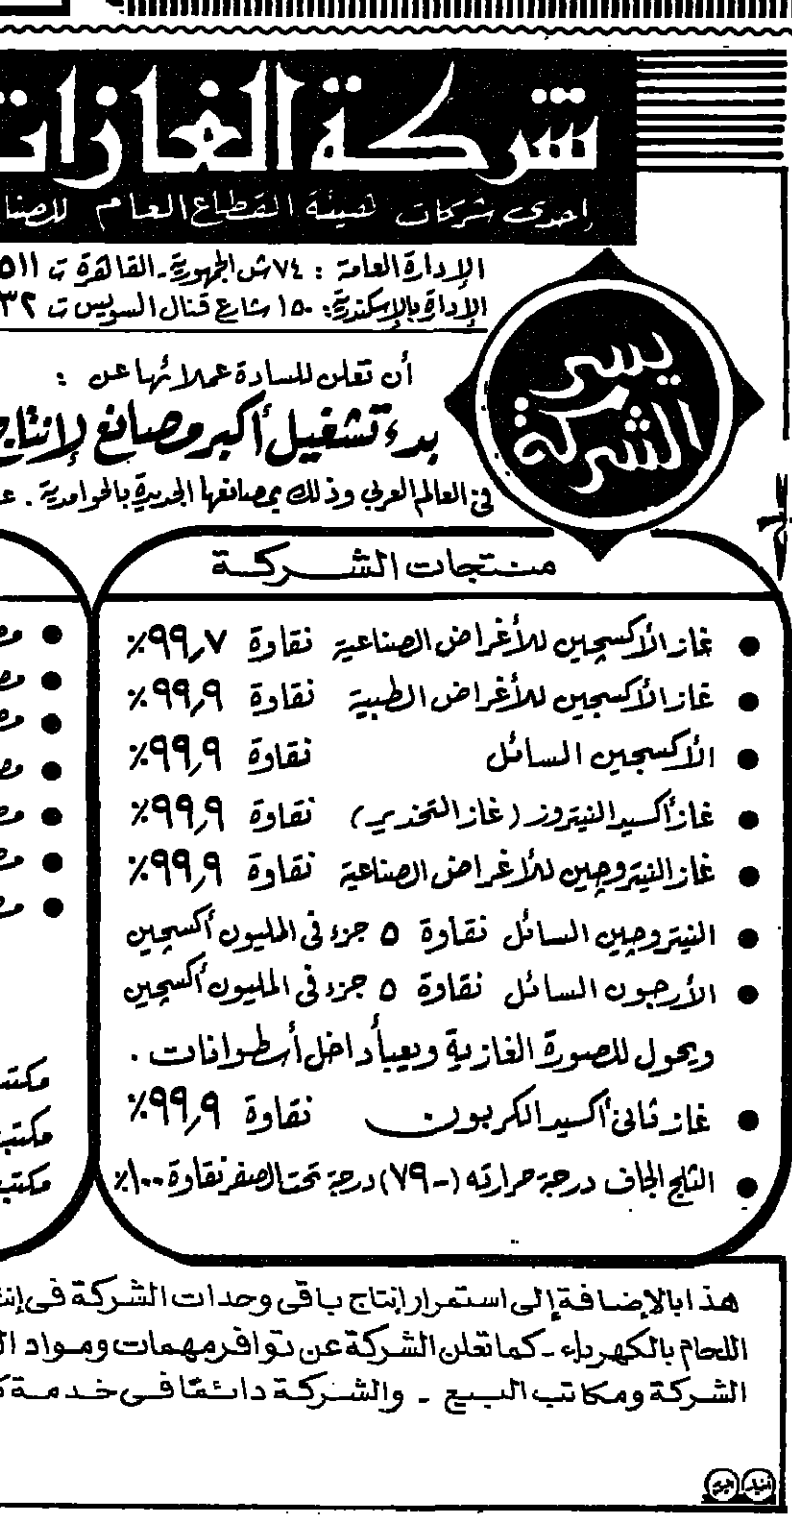 شركة الغازات
إحدى شركات هيئة القطاع العام للصنا
الإدارة العامة : ٧٤ ش الجمهورية - القاهرة ت ٥١١
الإدارة بالإسكندرية: ١٥٠ شارع قنال السويس ت ٣٢
يسر
الشركة
أن تعلن للسادة عملائها عن :
بدء تشغيل أكبر مصانع لإنتاج
في العالم العربي وذلك بمصانعها الجديدة بالحوامدية . ع
منتجات الشركة
• غاز الأكسجين للأغراض الصناعية نقاوة ٩٩,٧٪
• غاز الأكسجين للأغراض الطبية نقاوة ٩٩,٩٪
• الأكسجين السائل نقاوة ٩٩,٩٪
• غاز أكسيد النيتروز (غاز التخدير) نقاوة ٩٩,٩٪
• غاز النيتروجين للأغراض الصناعية نقاوة ٩٩,٩٪
• النيتروجين السائل نقاوة ٥ جزء فى المليون أكسجين
• الأرجون السائل نقاوة ٥ جزء فى المليون أكسجين
ويحول للصورة الغازية ويعبأ داخل أسطوانات .
• غاز ثانى أكسيد الكربون نقاوة ٩٩,٩٪
• الثلج الجاف درجة حرارته (-٧٩) درجة تحت الصفر نقاوة ١٠٠٪
مكتب
مكتب
مكتب
هذا بالإضافة إلى استمرار إنتاج باقى وحدات الشركة فى إنت
اللحام بالكهرباء - كما تعلن الشركة عن توافر مهمات ومواد ال
الشركة ومكاتب البيع - والشركة دائمًا فى خدمة